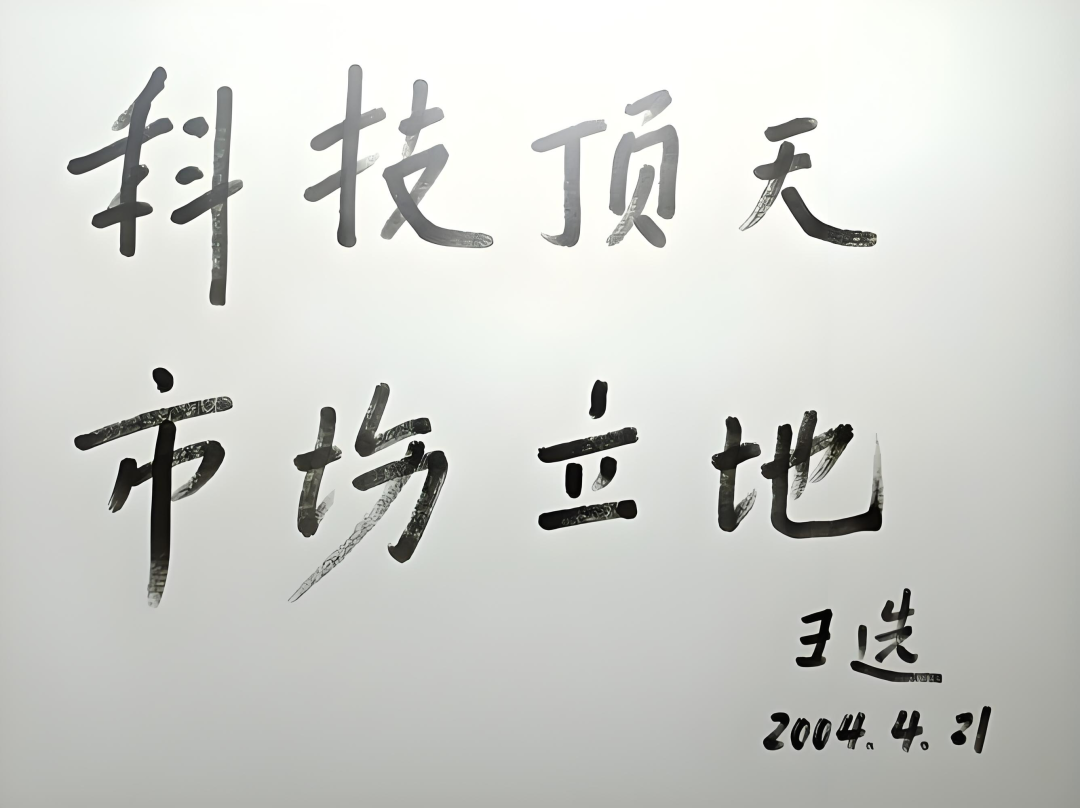 科技顶天
市场立地
王选
2004.4.21